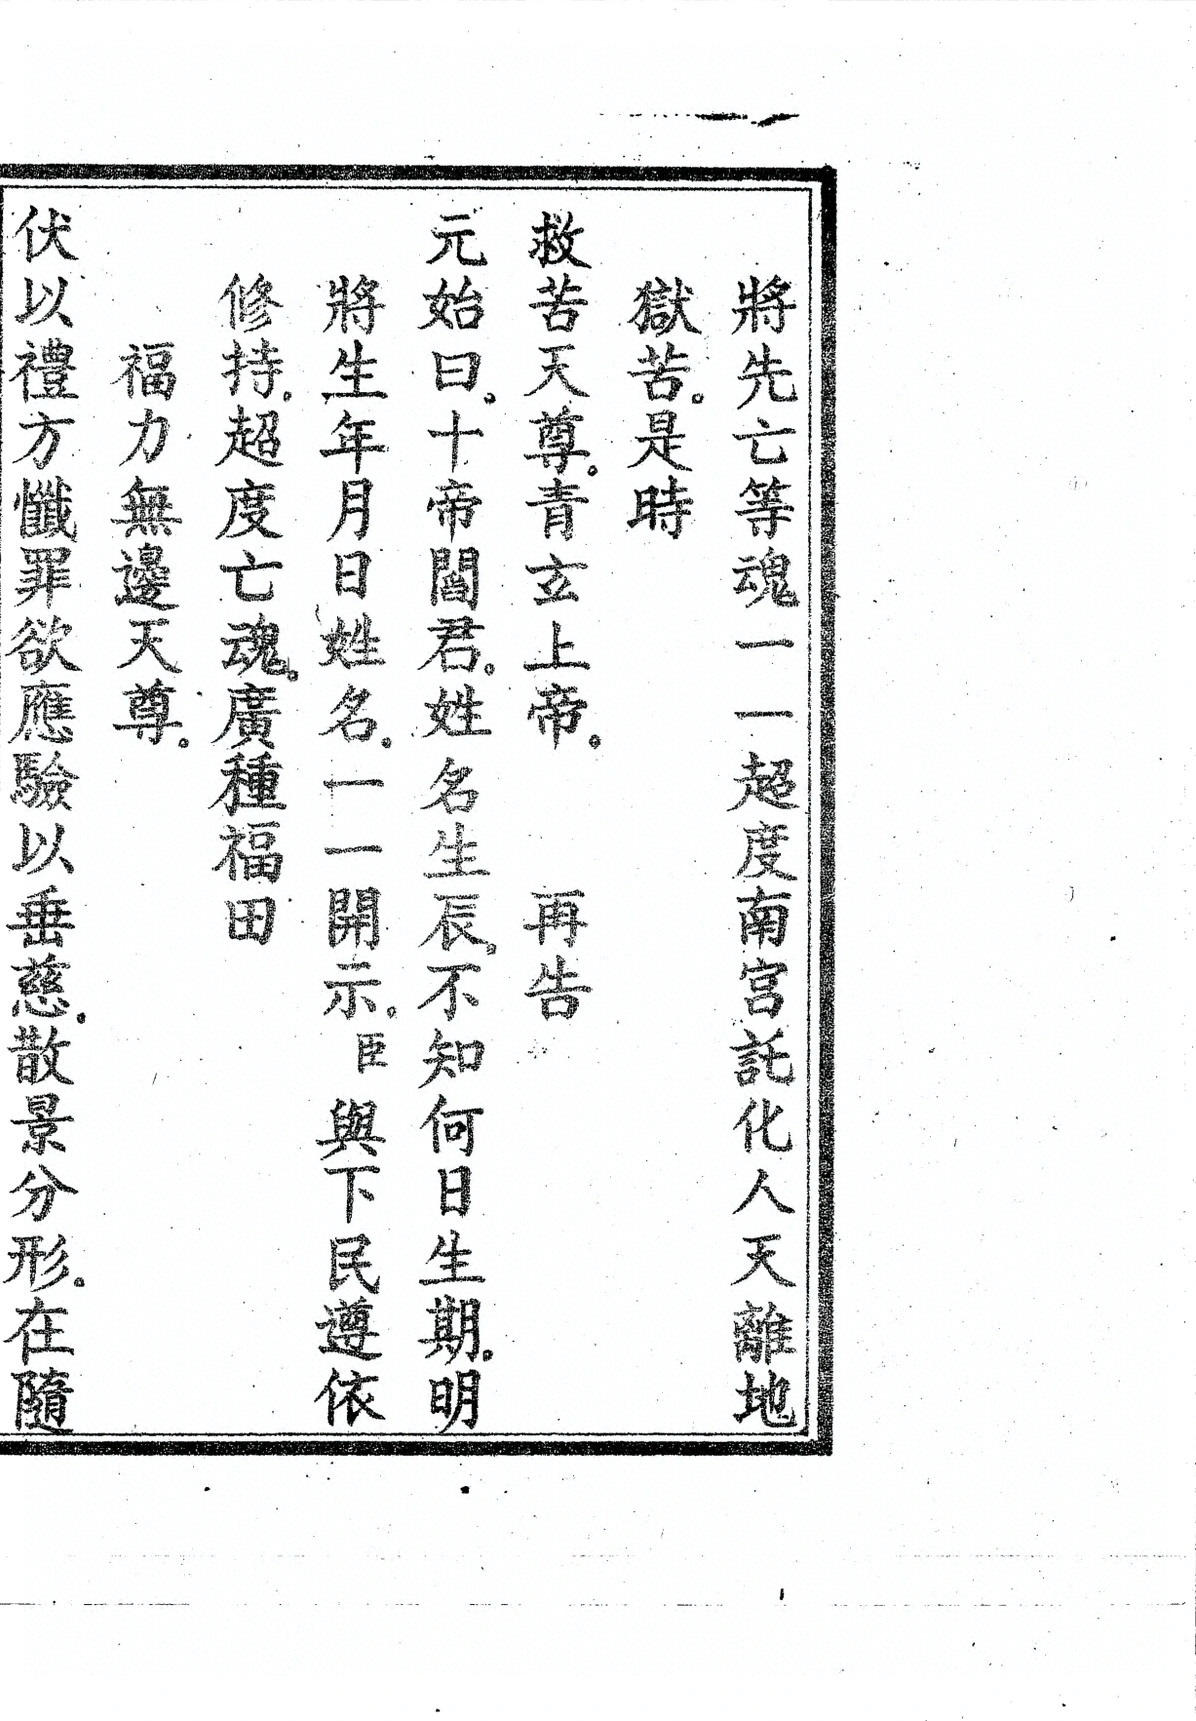 將先亡等魂一一超度南宮託化人天離地
獄苦。是時
救苦天尊。青玄上帝。　再告
元始曰。十帝閻君。姓名生辰。不知何日生期。明
將生年月日姓名。一一開示。臣與下民遵依
修持。超度亡魂。廣種福田
福力無邊天尊。
伏以禮方懺罪欲應驗以垂慈。散景分形。在隨